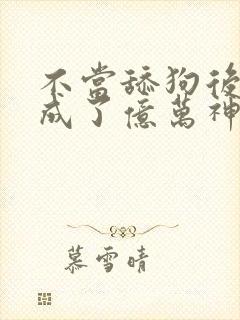 不當舔狗後
成了億萬神
慕雪晴